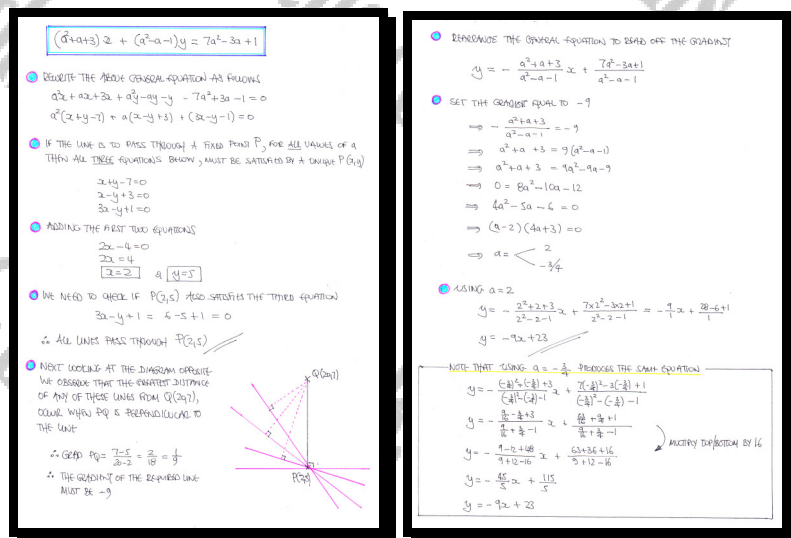 (a²+a+3)x + (a²-a-1)y = 7a²-3a+1
REWRITE THE ABOVE GENERAL EQUATION AS FOLLOWS
a²x + ax + 3x + a²y - ay - y - 7a² + 3a - 1 = 0
a²(x+y-7) + a(x-y+3) + (3x-y-1) = 0
IF THE LINE IS TO PASS THROUGH A FIXED POINT P, FOR ALL VALUES OF a
THEN ALL THREE EQUATIONS BELOW, MUST BE SATISFIED BY A UNIQUE P(x,y)
x+y-7=0
x-y+3=0
3x-y+1=0
ADDING THE FIRST TWO EQUATIONS
2x-4=0
2x=4
x=2 & y=5
WE NEED TO CHECK IF P(2,5) ALSO SATISFIES THE THIRD EQUATION
3x-y+1 = 6-5+1 = 0
∴ ALL LINES PASS THROUGH P(2,5)
NEXT LOOKING AT THE DIAGRAM OPPOSITE
WE OBSERVE THAT THE GREATEST DISTANCE
OF ANY OF THESE LINES FROM Q(20,7),
OCCUR WHEN PQ IS PERPENDICULAR TO
THE LINE
∴ GRAD PQ = 7-5/20-2 = 2/18 = 1/9
∴ THE GRADIENT OF THE REQUIRED LINE
MUST BE -9
Q(20,7)
P(2,5)
REARRANGE THE GENERAL EQUATION TO READ OFF THE GRADIENT
y = - a²+a+3/a²-a-1 x + 7a²-3a+1/a²-a-1
SET THE GRADIENT EQUAL TO -9
⇒ - a²+a+3/a²-a-1 = -9
⇒ a²+a+3 = 9(a²-a-1)
⇒ a²+a+3 = 9a²-9a-9
⇒ 0 = 8a²-10a-12
⇒ 4a²-5a-6=0
⇒ (a-2)(4a+3)=0
⇒ a = < 2
-3/4
USING a=2
y = - 2²+2+3/2²-2-1 x + 7×2²-3×2+1/2²-2-1 = - 9/1 x + 28-6+1/1
y = -9x+23
NOTE THAT USING a = -3/4 PRODUCES THE SAME EQUATION
y = - (-3/4)²+(-3/4)+3/(-3/4)²-(-3/4)-1 x + 7(-3/4)²-3(-3/4)+1/(-3/4)²-(-3/4)-1
y = - 9/16-3/4+3/9/16+3/4-1 x + 63/16+9/4+1/9/16+3/4-1
MULTIPLY TOP/BOTTOM BY 16
y = - 9-12+48/9+12-16 x + 63+36+16/9+12-16
y = - 45/5 x + 115/5
y = -9x + 23